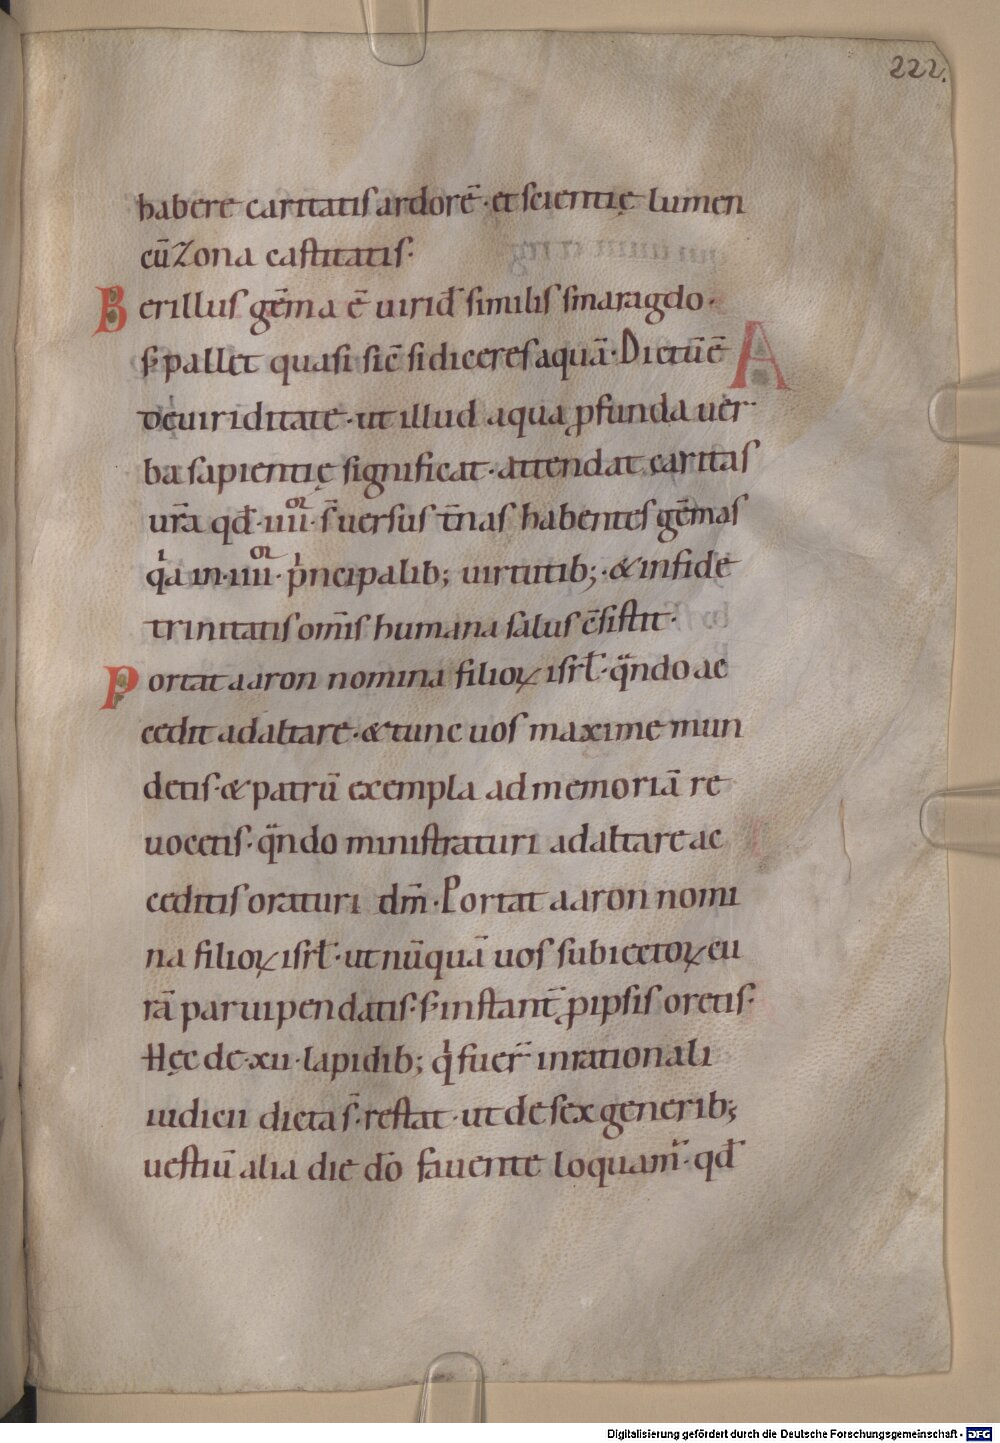 222.
habere caritatis ardorē · et scientię lumen
cū Zona castitatis ·
Berillus gēma ē uirid̄ similis smaragdo ·
s; pallet quasi siē si diceres aquā · Dictū ē A
de uiriditate · ut illud aqua ꝓfunda uer
ba sapientię significat · attendat caritas
ur̄a qd̄ · iiiiᵒʳ · s̄ uersus t̄nas habentes gēmas
qͥa in · iiiiᵒʳ · pͥncipalib; uirtutib; · & in fide
trinitatis om̄is humana salus c̄sistit ·
Portat aaron nomina filioꝝ isrł · qͣndo ac
cedit ad altare · & tunc uos maxime mun
detis · & patrū exempla ad memoriā re
uocetis · qͣndo ministraturi ad altare ac
ceditis oraturi dm̄ · Portat aaron nomi
na filioꝝ isrł · ut nūquā uos subiectoꝝ cu
rā paruipendatis · s; instant̄ ꝓ ipsis oretis ·
Hęc de · xii · lapidib; qͥ fuer̄ in rationali
iudicii dicta s̄ · restat · ut de sex generib;
uestiū alia die dō fauente loquam̄ · qd̄
Digitalisierung gefördert durch die Deutsche Forschungsgemeinschaft - DFG